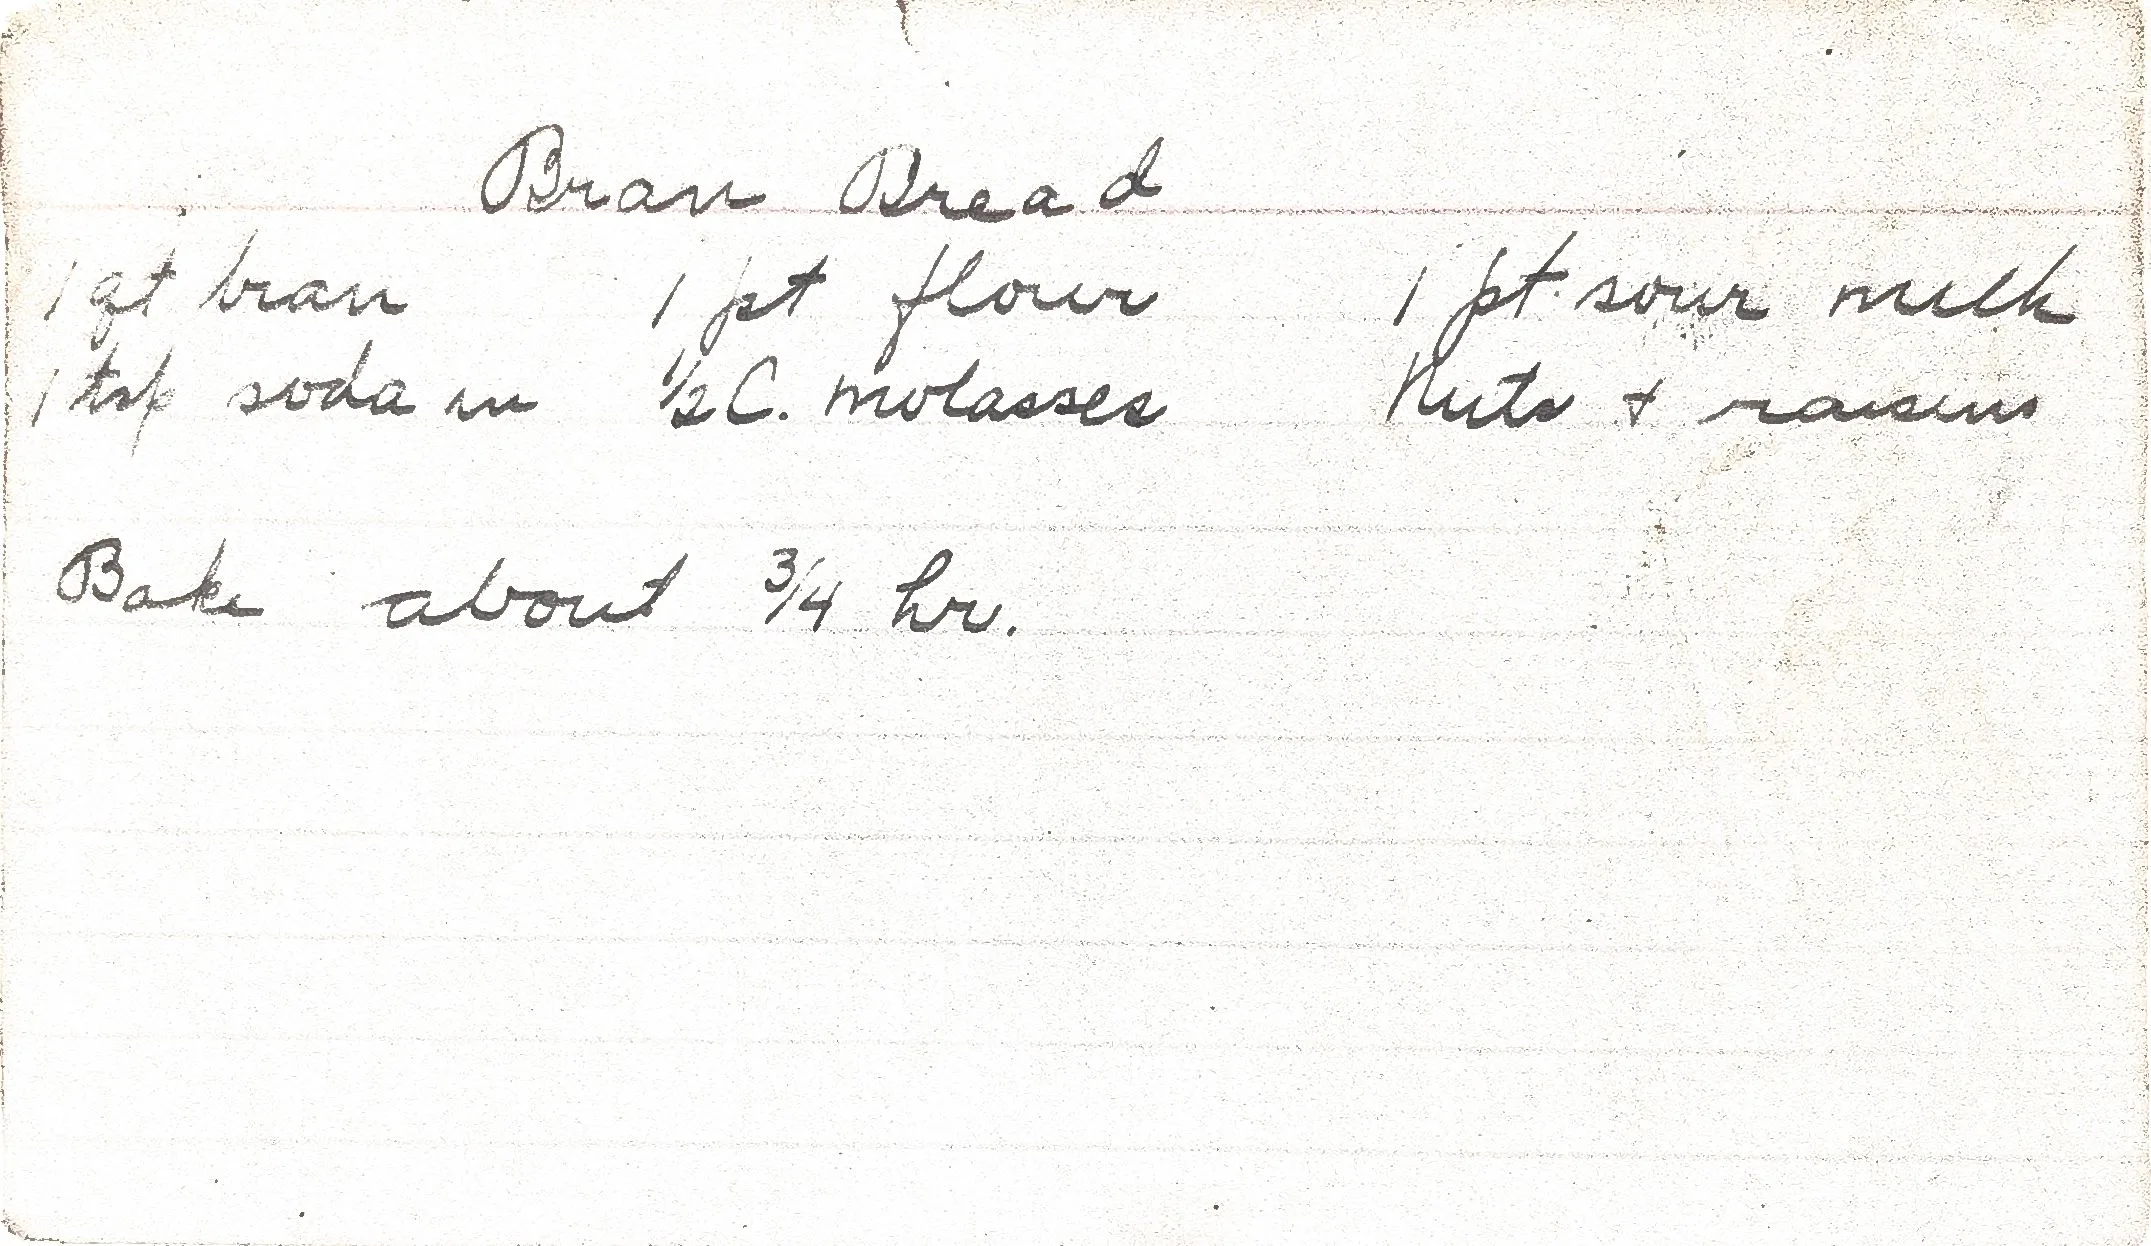 Bran Bread
1 qt bran 1 pt flour 1 pt. sour milk
1 tsp soda in 1/2 C. molasses Nuts + raisins
Bake about 3/4 hr.